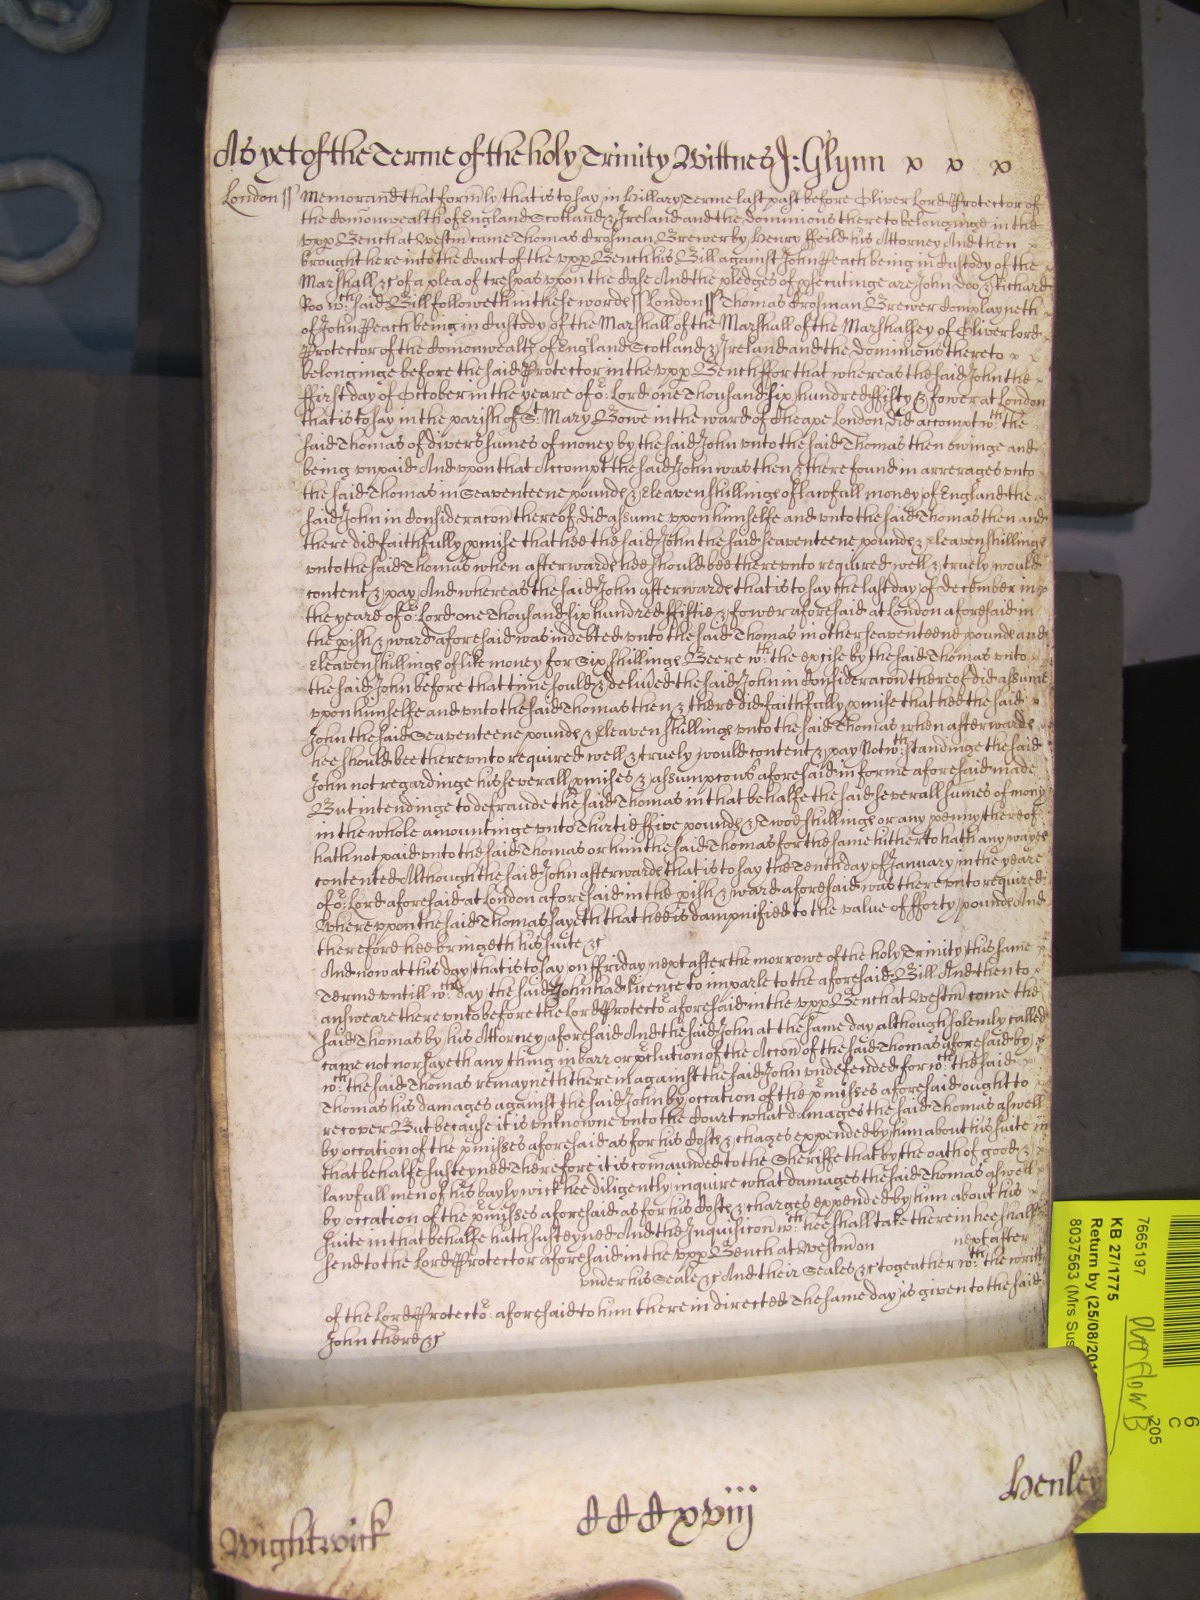 As yet of the Terme of the holy Trinity Wittnes J: Glynn x x x
London ss Memorand that formly that is to say in Hillary Terme last past before Oliver Lord Protector of
the Comonwealth of England Scotland & Ireland and the Dominions thereto belonginge in the
upp Bench at Westm came Thomas Crosman Brewer by Henry ffeild his Attorney And then
brought here into the Court of the upp Bench his Bill against John Peach being in Custody of the
Marshall &c of a plea of trespas uppon the Case And the pledges of psecutinge are John Doo & Richard
Roo wch said Bill followeth in these words ss London ss Thomas Crosman Brewer Complayneth
of John Peach being in Custody of the Marshall of the Marshall of the Marshallsey of Oliver Lord
Protector of the Comonwealth of England Scotland & Ireland and the Dominions thereto x x
belonginge before the said Protector in the upp Bench ffor that whereas the said John the
ffirst day of October in the yeare of or Lord one Thousand six hundred ffifty & fower at London
that is to say in the parish of St Mary Bowe in the ward of Cheape London did accompt wth the
said Thomas of divers sumes of money by the said John unto the said Thomas then owinge and
being unpaid And uppon that Accompt the said John was then & there found in arrerages unto
the said Thomas in Seaventeene pounds & Eleaven shillings of lawfull money of England the
said John in Consideracon thereof did assume uppon himselfe and unto the said Thomas then and
there did faithfully pmise that hee the said John the said seaventeene pounds & eleaven shillings
unto the said Thomas when afterwards hee should bee thereunto required well & truely would
content & pay And whereas the said John afterwards that is to say the last day of December in
the yeare of or Lord one Thousand six hundred ffiftie & fower aforesaid at London aforesaid in
the pish & ward aforesaid was indebted unto the said Thomas in other seaventeene pounds and
eleaven shillings of like money for Six shillings Beere wth the excise by the said Thomas unto
the said John before that time sould & delived the said John in Consideracon thereof did assume
uppon himselfe and unto the said Thomas then & there did faithfully pmise that hee the said
John the said Seaventeene pounds & eleaven shillings unto the said Thomas when afterwards
hee should bee thereunto required well & truely would content & pay Notwthstandinge the said
John not regardinge his severall pmises & assumptons aforesaid in forme aforesaid made
But intendinge to defraude the said Thomas in that behalfe the said severall sumes of mony
in the whole amountinge unto Thirtie ffive pounds & Twoe shillings or any penny thereof
hath not paid unto the said Thomas or him the said Thomas for the same hitherto hath any wayes
contented Although the said John afterwards that is to say the Tenth day of January in the yeare
of or Lord aforesaid at London aforesaid in the pish & ward aforesaid was thereunto required
Whereuppon the said Thomas sayeth that hee is dampnified to the value of fforty pounds And
therefore hee bringeth his suite &c
And now at this day that is to say on ffriday next after the morrowe of the holy Trinity this same
Terme untill wch day the said John had licence to imparle to the aforesaid Bill And then to
answeare thereunto before the Lord Protector aforesaid in the upp Bench at Westm come the
said Thomas by his Attorney aforesaid And the said John at the same day although solemly called
came not nor sayeth any thing in barr or pclution of the Accon of the said Thomas aforesaid by
wch the said Thomas remayneth therein against the said John undefended for wch the said
Thomas his damages against the said John by occation of the pmisses aforesaid ought to
recover But because it is unknowne unto the Court what damages the said Thomas aswell
by occation of the pmisses aforesaid as for his Costs & chages expended by him about his suite in
that behalfe susteyned Therefore it is comaunded to the Sheriffe that by the oath of good &
lawfull men of his baylywick hee diligently inquire what damages the said Thomas aswell
by occation of the pmisses aforesaid as for his Costs & charges expended by him about his
suite in that behalfe hath susteyned And the Inquisicon wch hee shall take therein hee shall
send to the Lord Protector aforesaid in the upp Bench at Westm on next after
under his Seale &c And their Seales &c togeather wth the writt
of the Lord Protector aforesaid to him therein directed The same day is given to the said
John there &c
Wightwick
CCCxviij
Henley
7665197
KB 27/1775
Return by (25/08/201
8037563 (Mrs Sus
Overflow B
205
C
6